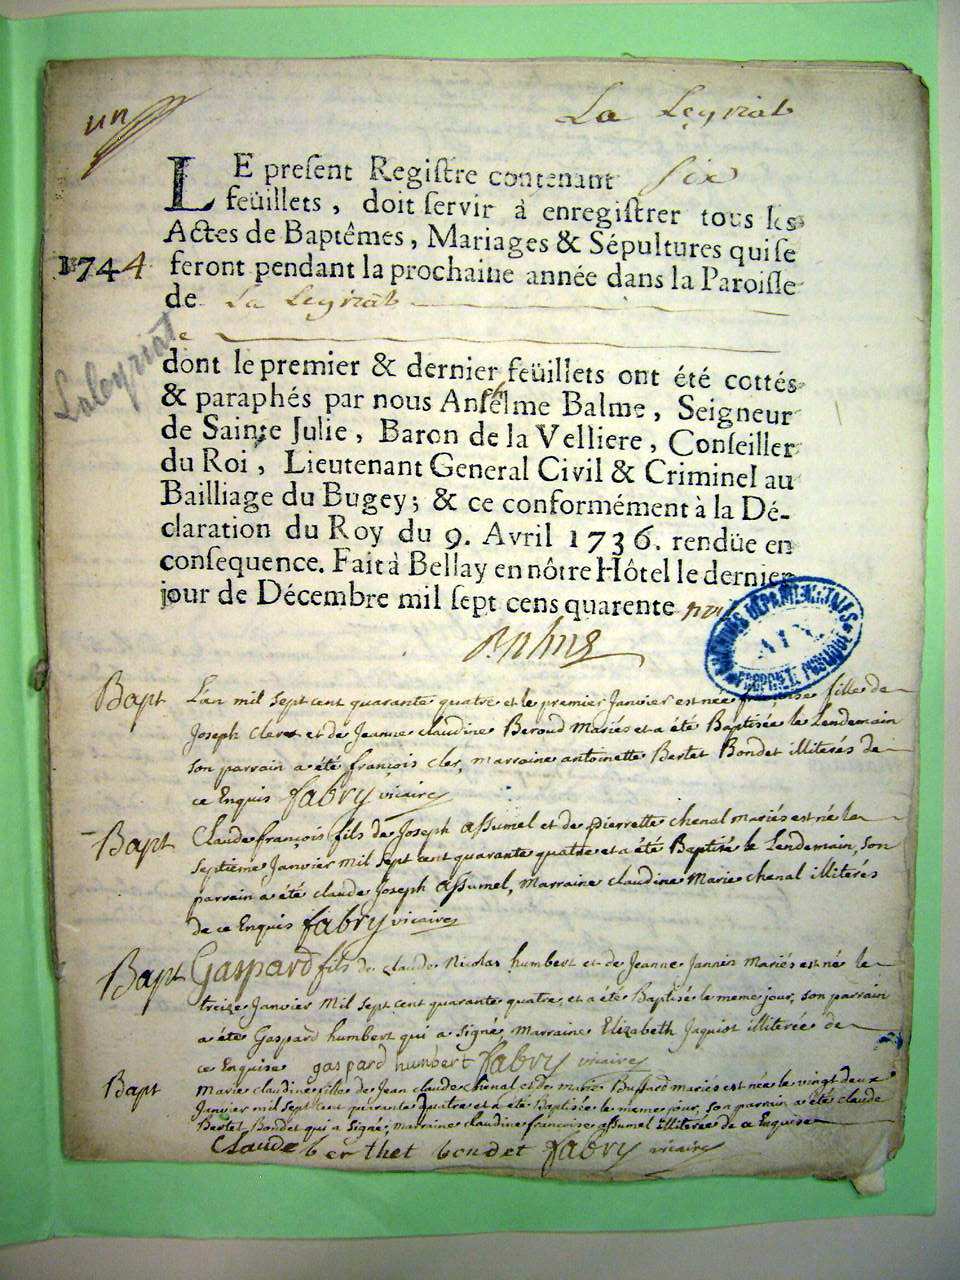 un
La Leyriat
LE present Registre contenant six
feüillets, doit servir à enregistrer tous les
Actes de Baptêmes, Mariages & Sépultures qui se
1744 feront pendant la prochaine année dans la Paroisse
de La Leyriat
Laleyriat
dont le premier & dernier feüillets ont été cottés
& paraphés par nous Anthelme Balme, Seigneur
de Sainte Julie, Baron de la Velliere, Conseiller
du Roi, Lieutenant General Civil & Criminel au
Bailliage du Bugey; & ce conformément à la Dé-
claration du Roy du 9. Avril 1736. rendüe en
consequence. Fait à Bellay en nôtre Hôtel le dernier
jour de Décembre mil sept cens quarente
Balme
ARCHIVES DÉPARTEMENTALES
AIN
PROPRIÉTÉ PUBLIQUE
Bapt L'an mil sept cent quarante quatre et le premier Janvier est née françoise fille de
Joseph Clert et de Jeanne claudine Beroud Mariés et a été Baptisée le Lendemain
son parrain a été françois cler, marraine antoinette Bertet Bondet illiterés de
ce Enquis fabry vicaire
Bapt Claude françois fils de Joseph assumel et de pierrette chenal mariés est né le
septieme Janvier mil sept cent quarante quatre et a été Baptisé le Lendemain, son
parrain a été claude Joseph assumel, Marraine claudine Marie chenal illiterés
de ce Enquis fabry vicaire
Bapt Gaspard fils de claude Nicolas humbert et de Jeanne Jannin Mariés est né le
treize Janvier Mil sept cent quarante quatre, et a été Baptisé le meme jour, son parrain
a été Gaspard humbert qui a signé Marraine Elizabeth Jaquiot illiterée de
ce Enquise gaspard humbert fabry vicaire
Bapt Marie claudine fille de Jean claude chenal et de marie Buffard mariés est née le vingt deux
Janvier mil sept cent quarante quatre et a été Baptisée le meme jour, son parrain a été claude
Bertet Bondet qui a signé, marraine claudine françoise assumel Illiterée de ce Enquise
Claude berthet bondet fabry vicaire